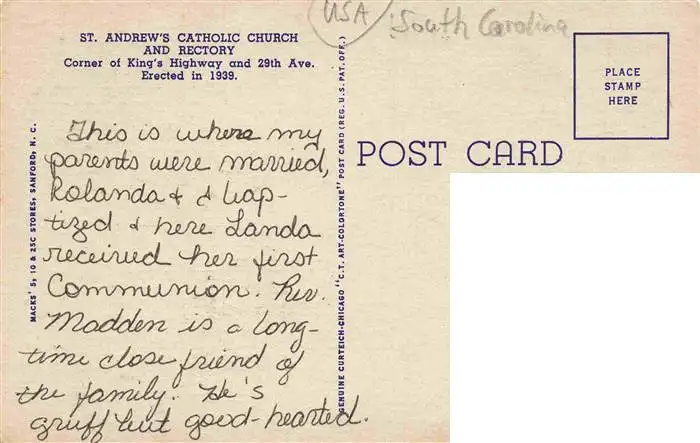 USA
South Carolina
ST. ANDREW'S CATHOLIC CHURCH
AND RECTORY
Corner of King's Highway and 29th Ave.
Erected in 1939.
PLACE
STAMP
HERE
POST CARD
MACKS' 5, 10 & 25C STORES, SANFORD, N. C.
This is where my
parents were married,
Rolanda & I bap-
tized & here Landa
received her first
Communion. Rev.
Madden is a long-
time close friend of
the family. He's
gruff but good-hearted.
GENUINE CURTEICH-CHICAGO "C.T. ART-COLORTONE" POST CARD (REG. U.S. PAT. OFF.)